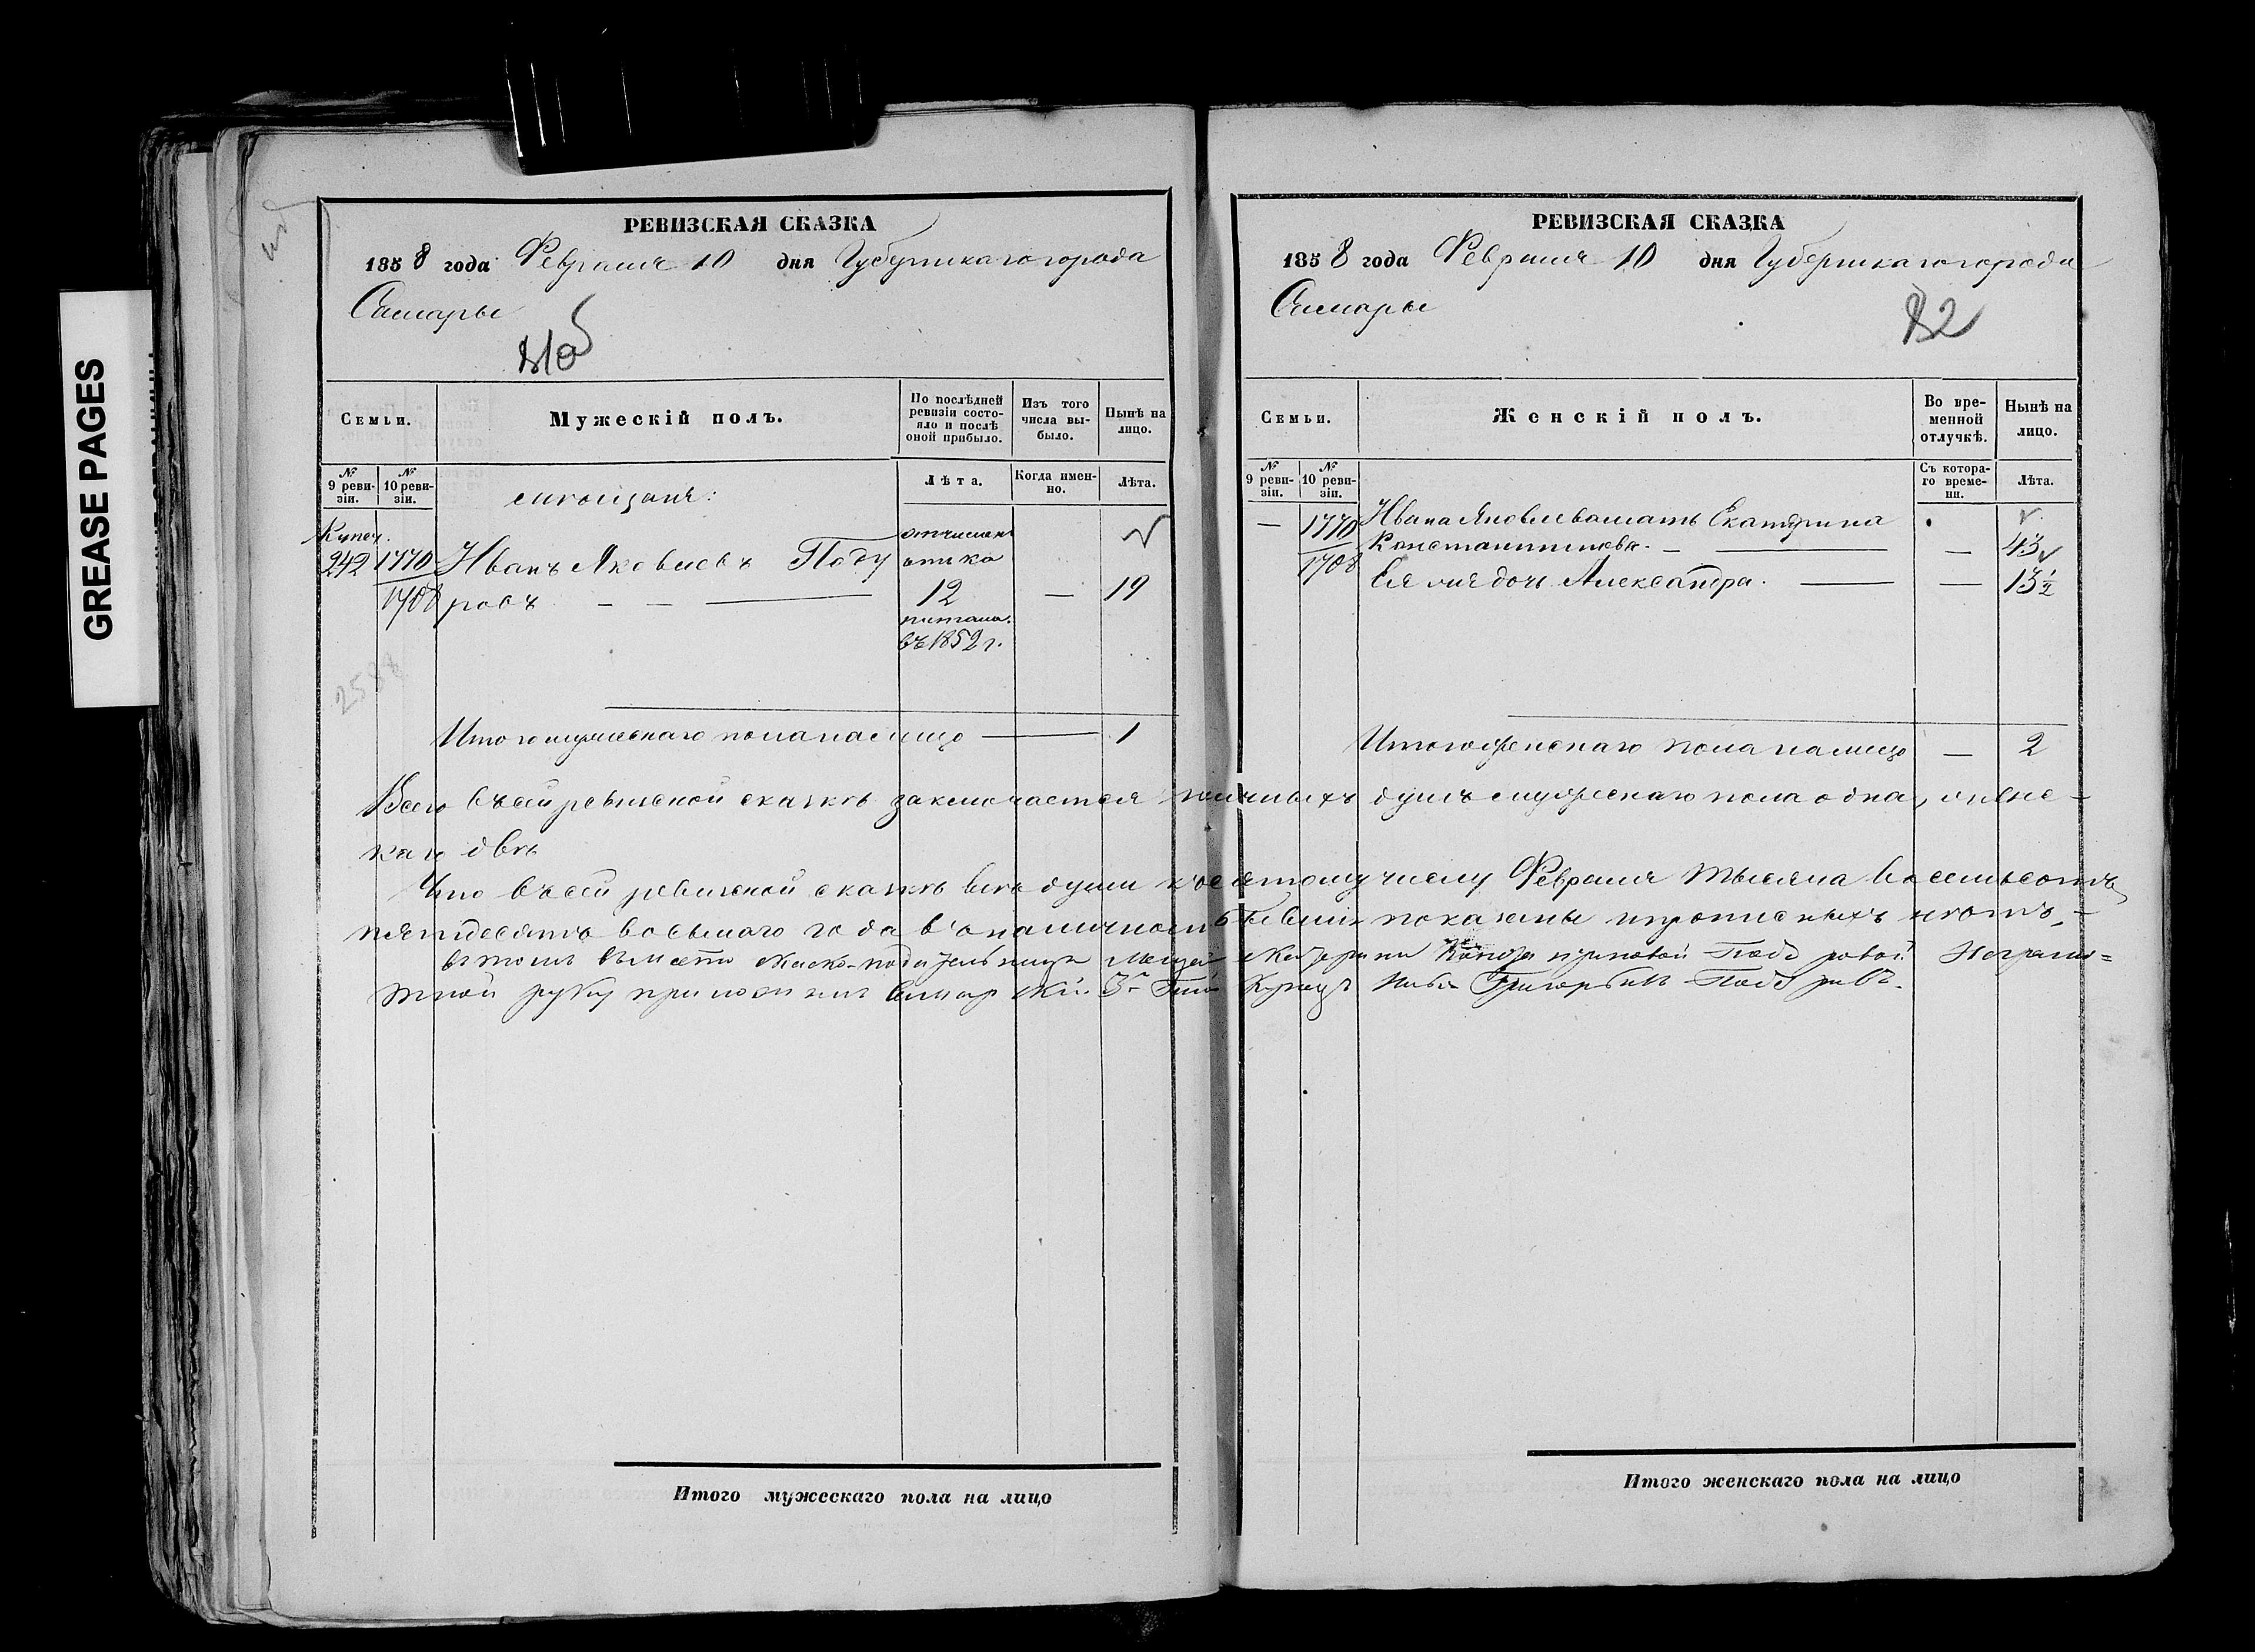 GREASE PAGES
РЕВИЗСКАЯ СКАЗКА
1858 года Февраля 10 дня Губернскаго города
Самары
Семьи.
Мужескій полъ.
По послѣдней ревизіи состояло и послѣ оной прибыло.
Изъ того числа выбыло.
Нынѣ на лицо.
№ 9 ревизіи.
№ 10 ревизіи.
Лѣта.
Когда именно.
Лѣта.
мѣщане:
Купеч.
242 1770 Иванъ Яковлевъ Подуровъ
1708
12
— 19
въ 1852 г.
Итого мужескаго пола на лицо — 1
РЕВИЗСКАЯ СКАЗКА
1858 года Февраля 10 дня Губернскаго города
Самары
82
Семьи.
Женскій полъ.
Во временной отлучкѣ.
Нынѣ на лицо.
№ 9 ревизіи.
№ 10 ревизіи.
Съ котораго времени.
Лѣта.
— 1770 Ивана Яковлева мать Екатерина
Константинова — — 43
1708 Ея дочь Александра. — — 13 1/2
Итого женскаго пола на лицо — 2
Всего въ сей ревизской сказкѣ заключается наличныхъ душъ мужескаго пола одна, женс-
каго двѣ
Что въ сей ревизской сказкѣ всѣ души къ десятому числу Февраля тысяча восемьсотъ
пятидесятъ восьмаго года въ наличности бывшія показаны и прописныхъ нѣтъ,-
въ томъ вмѣсто сказко-подательницы Екатерины Константиновой Подуровой Неграмо=
тной руку приложилъ Самарскій 3й Гил Купецъ Григорьевъ Подуровъ.
Итого мужескаго пола на лицо
Итого женскаго пола на лицо